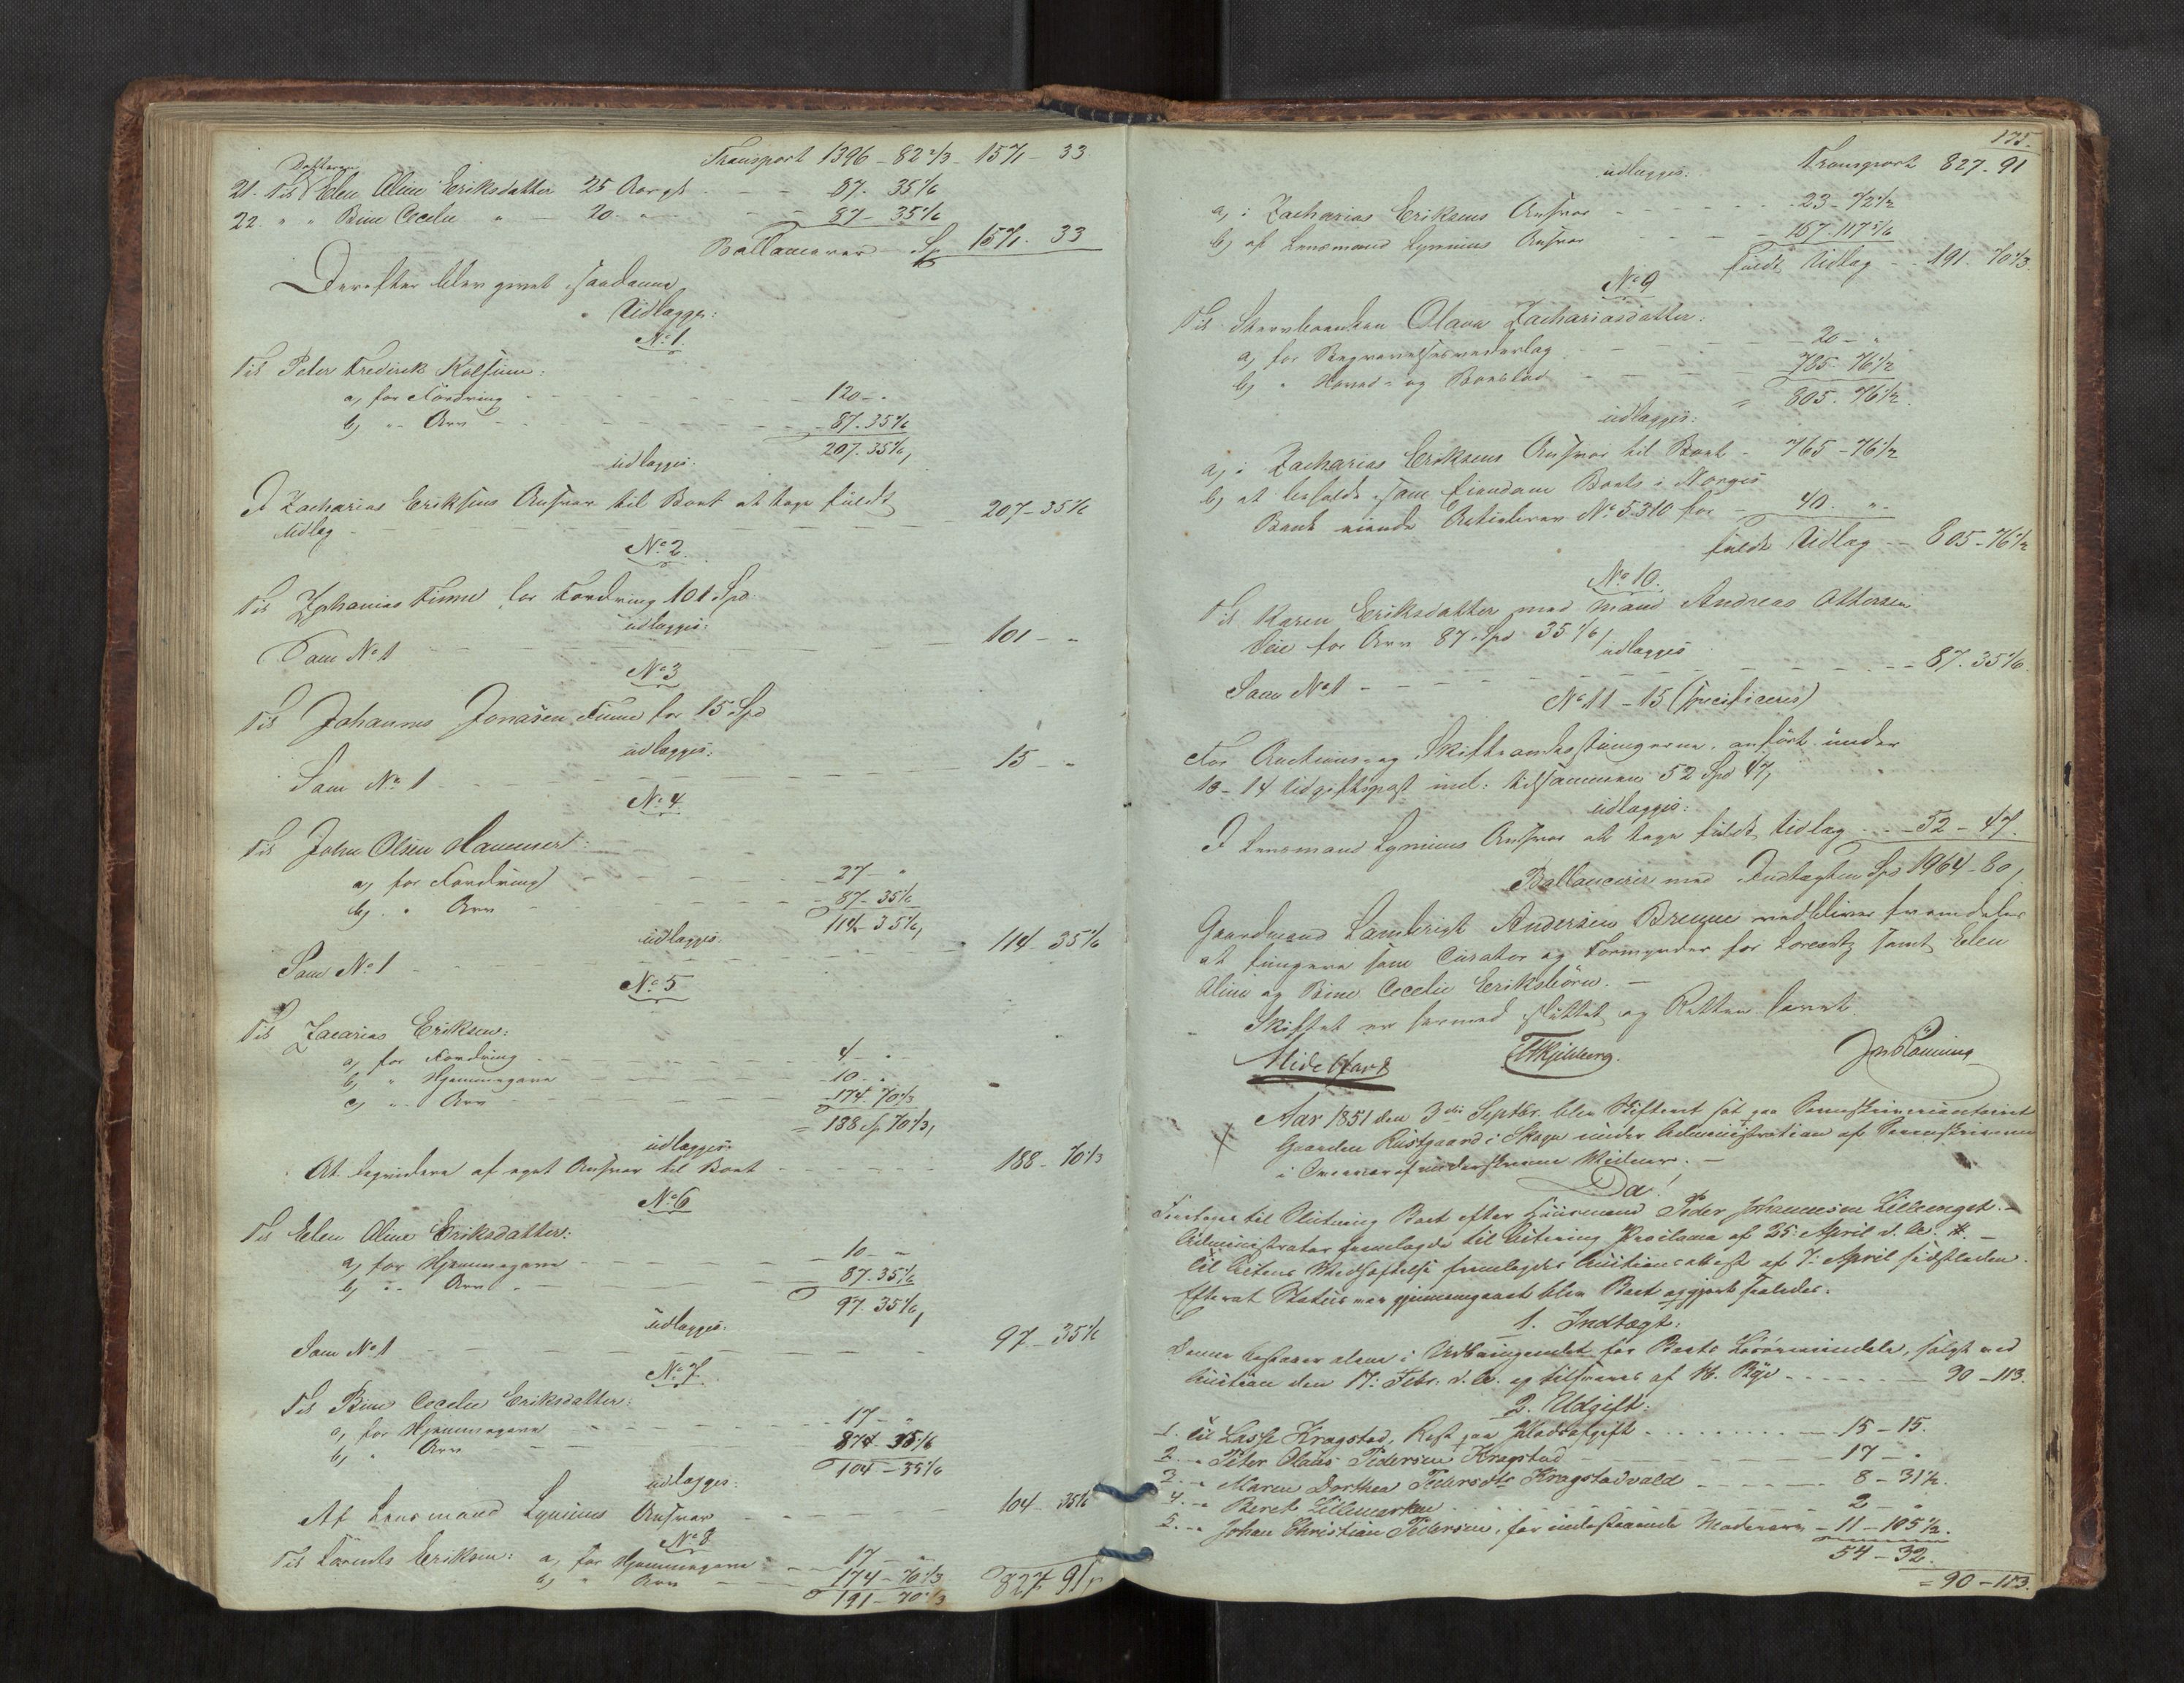 Transport 1396 - 82 2/3 - 1571 - 33
Datteren
21. Til Elen Aline Eriksdatter 25 Aar gl - - 87. 35 1/6
22. " " Bine Cecelie " - 20. " - - 87 - 35 1/6
Ballancerer Sp 1571. 33
Derefter blev givet saadanne
Udlægger:
No 1.
Til Peter Fredrik Kolsum:
a, for Fordring - - - 120 - "
b, " Arv - - - 87. 35 1/6
207. 35 1/6,
udlægges:
I Zacharias Eriksens Ansvar til Boet at tage fuldt
Udlæg - - - 207 - 35 1/6
No 2.
Til Zephanias Finne for Fordring 101 Spd
udlægges:
Som No 1 - - - 101 - "
No 3
Til Johannes Jonasen Finne for 15 Spd
udlægges:
Som No 1 - - - 15 - "
No 4.
Til John Olsen Hammer:
a, for Fordring - - - 27 - "
b, " Arv - - - 87 - 35 1/6
114 - 35 1/6,
udlægges:
Som No 1 - - - 114 - 35 1/6
No 5
Til Zacarias Eriksen:
a, for Fordring - - - 4 - "
b, " Hjemmegave - - - 10 - "
c, " Arv - - - 174. 70 1/3
= 188 Sp 70 1/3,
udlægges:
At liqvidere af eget Ansvar til Boet - - - 188 - 70 1/3
No 6
Til Elen Aline Eriksdatter:
a, for Hjemmegave - - - 10 - "
b, " Arv - - - 87. 35 1/6
97. 35 1/6,
udlægges:
Som No 1 - - - 97 - 35 1/6
No 7.
Til Bine Cecelie Eriksdatter:
a, for Hjemmegave - - - 17 - "
b, " Arv - - - 87 - 35 1/6
104 - 35 1/6
udlægges:
Af Lensmand Lynums Ansvar - - - 104 - 35 1/6
No 8
Til Lorents Eriksen: a, for Hjemmegave - - 17 - "
b, " Arv - - 174 - 70 1/3
191 - 70 1/3 827. 91,
175.
Transport 827. 91
udlægges:
a, i Zacharias Eriksens Ansvar - - - 23 - 72 1/2
b, af Lensmand Lynums Ansvar - - - 167. 117 5/6
fuldt Udlæg - - 191. 70 1/3
No 9
Til Stervboenken Olava Zachariasdatter:
a, for Begravelsesvederlag - - - 20 - "
b, " Hoved- og Boeslod - - - 785. 76 1/2
= 805. 76 1/2.
udlægges:
a, i Zacharias Eriksens Ansvar til Boet - 765 - 76 1/2
b, at beholde som Eiendom Boets i Norges
Bank eiende Actiebrev No 5310 for - 40. " -
fuldt Udlæg - - 805 - 76 1/2
No 10.
Til Karen Eriksdatter med Mand Andreas Ottersen
Veie for Arv 87 Spd 35 1/6/
udlægges
Som No 1 - - - 87. 35 1/6.
No 11 - 15 (specificeres)
For Auctions- og Skifteomkostningerne, anført under
10 - 14 Udgiftspost incl: tilsammen 52 Spd 47,
udlægges:
I Lensmand Lynums Ansvar at tage fuldt Udlæg - - 52 - 47.
Ballancerer med Indtægten Spd 1964 - 80,
Gaardmand Lambrigt Andersen Brenne vedbliver fremdeles
at fungere som Curator og Formynder for Lorentz samt Elen
Aline og Bine Cecelie Eriksbørn. -
Skiftet er hermed sluttet og Retten hævet.
Midelfart THKjelberg. Jon Rønning
Aar 1851 den 3die Septbr. blev Skifteret sat paa Sorenskrivercontoiret
Gaarden Rustgaard i Skogn under Administration af Sorenskriveren
i Overvær af underskrevne Vidner. -
Da!
Foretages til Slutning Boet efter Huusmand Peder Johannesen Lillemyhr. -
Administrator fremlagde til Actering Proclama af 25 April d. A. #. -
Til Actens Vedhæftelse fremlagdes Auctionsattest af 7 April sidstleden.
Efterat Status var gjennemgaaet blev Boet opgjort saaledes:
1. Indtægt:
Denne bestaaer alene i Udbringendet for Boets Løsøremidele, solgt ved
Auction den 17. Febr. d. A. og tilsvares af H. Rye - - - 90 - 113.
2. Udgift:
1. Til Lasse Kragstad, Rest paa Pladsafgift - - - 15 - 15.
2. " Peter Olaus Pedersen Kragstad - - - 17 - "
3. " Maren Dorthea Pedersdtr Kragstadvald - - - 8 - 31 1/2.
4. " Beret Lillemarken - - - 2 - "
5. " Johan Christian Pedersen, for indestaaende Mødrearv - 11 - 105 1/2.
54 - 32.
= 90 - 113.